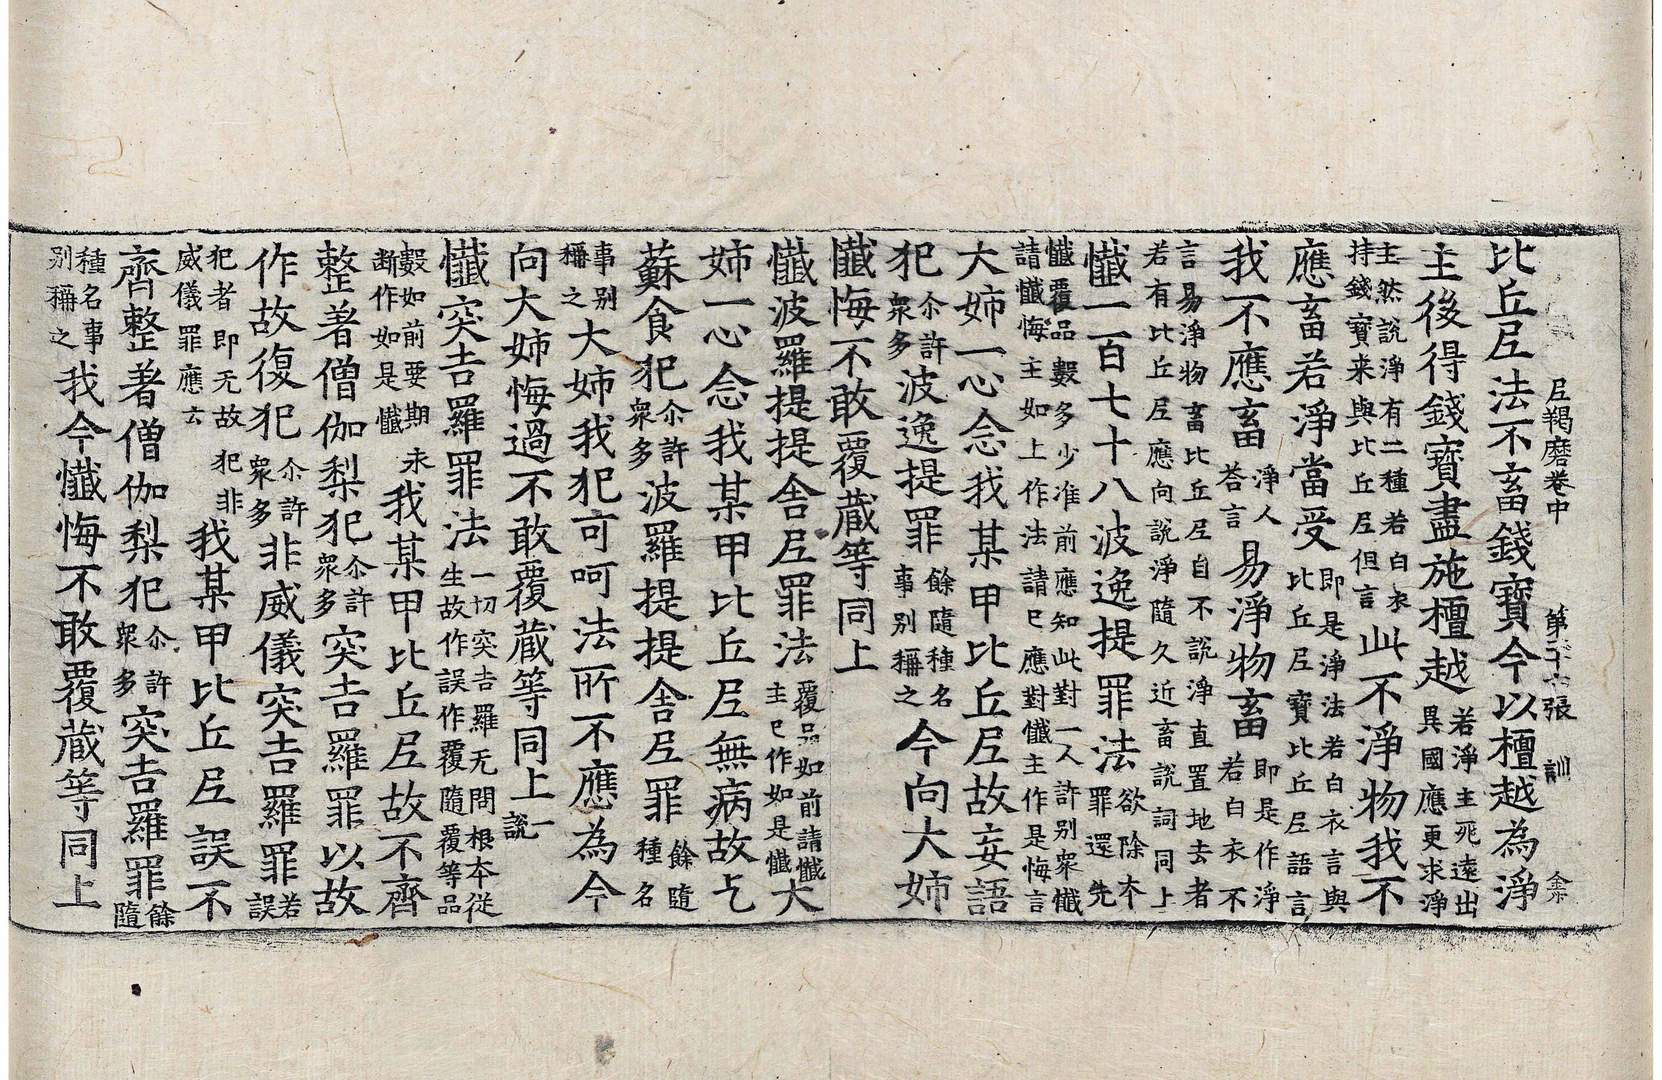 尼羯磨卷中 第十六張 訓
比丘尼法不畜錢寶今以檀越為淨
主後得錢寶盡施檀越若淨主死遠出異國應更求淨
主然說淨有二種若白衣持錢寶来與比丘尼但言此不淨物我不
應畜若淨當受即是淨法若白衣言與比丘尼寶比丘尼語言
我不應畜淨人答言易淨物畜即是作淨若白衣不
言易淨物畜比丘尼自不說淨直置地去者若有比丘尼應向說淨隨久近畜說詞同上
懺一百七十八波逸提罪法欲除本罪還先
懺覆品數多少准前應知此對一人許别衆懺請懺悔主如上作法請已應對懺主作是悔言
大姊一心念我某甲比丘尼故妄語
犯尒許衆多波逸提罪餘隨種名事别稱之今向大姊
懺悔不敢覆蔵等同上
懺波羅提提舍尼罪法覆品如前請懺主已作如是懺大
姉一心念我某甲比丘尼無病故乞
蘇食犯尒許衆多波羅提提舍尼罪餘隨種名
事别稱之大姊我犯可呵法所不應為今
向大姊悔過不敢覆蔵等同上一說
懺突吉羅罪法一切突吉羅无問根本從生故作誤作覆隨覆等品
數如前要期永断作如是懺我某甲比丘尼故不齊
整著僧伽梨犯尒許衆多突吉羅罪以故
作故復犯尒許衆多非威儀突吉羅罪若誤
犯者即无故犯非威儀罪應云我某甲比丘尼誤不
齊整著僧伽梨犯尒許衆多突吉羅罪餘隨
種名事别稱之我今懺悔不敢覆蔵等同上